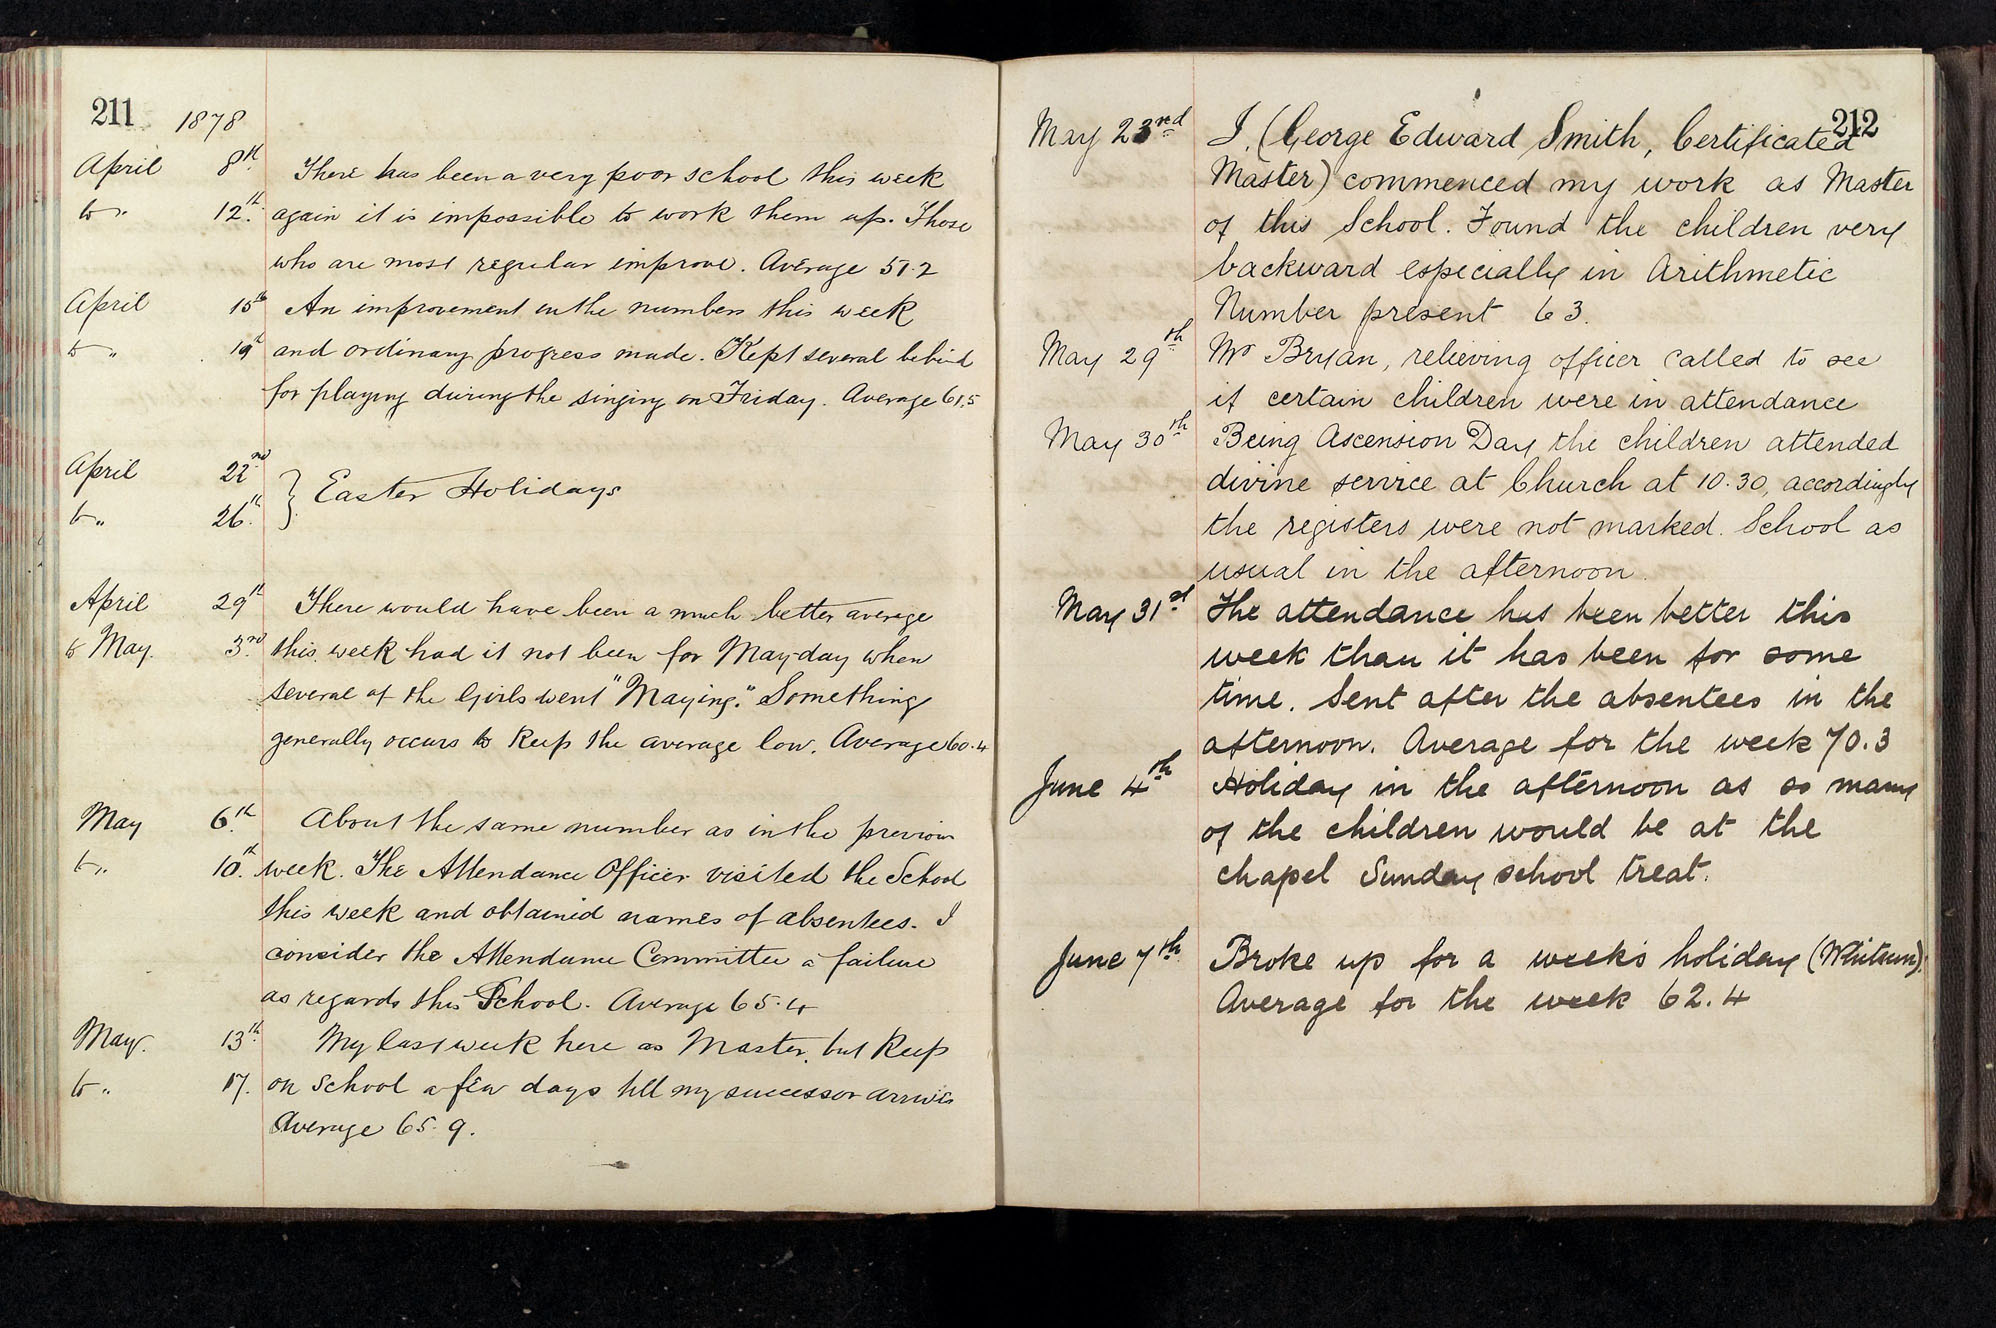 211 1878
April 8th There has been a very poor school this week
to " 12th again it is impossible to work them up. Those
who are most regular improve. Average 51.2
April 15th An improvement in the numbers this week
to " 19th and ordinary progress made. Kept several behind
for playing during the singing on Friday. Average 61.5
April 22nd
Easter Holidays
to " 26th
April 29th There would have been a much better average
to May. 3rd this week had it not been for May-day when
several of the Girls went "Maying." Something
generally occurs to keep the average low. Average 60.4
May 6th About the same number as in the previous
to " 10th week. The Attendance Officer visited the School
this week and obtained names of absentees. I
consider the Attendance Committee a failure
as regards this School. Average 65.4
May. 13th My last week here as Master, but keep
to " 17. on school a few days till my successor arrives
Average 65.9.
212
May 23rd I, (George Edward Smith, Certificated
Master) commenced my work as Master
of this School. Found the children very
backward especially in Arithmetic
Number present 63.
May 29th Mr Bryan, relieving officer called to see
if certain children were in attendance
May 30th Being Ascension Day the children attended
divine service at Church at 10.30, accordingly
the registers were not marked. School as
usual in the afternoon.
May 31st The attendance has been better this
week than it has been for some
time. Sent after the absentees in the
afternoon. Average for the week 70.3
June 4th Holiday in the afternoon as so many
of the children would be at the
chapel Sunday school treat.
June 7th Broke up for a week's holiday (Whitsun).
Average for the week 62.4